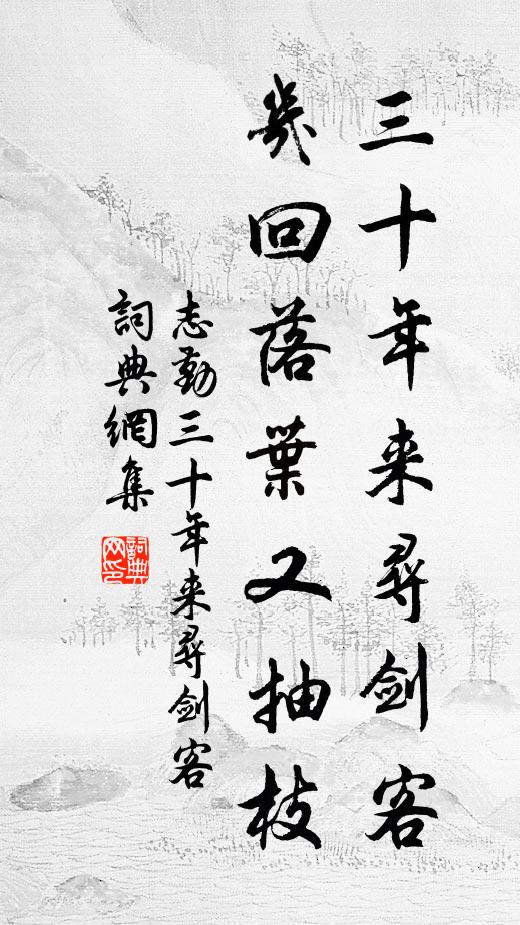 三十年来尋剑客
幾回落葉又抽枝
志勤三十年来尋剑客
詞典網集
詞典网印